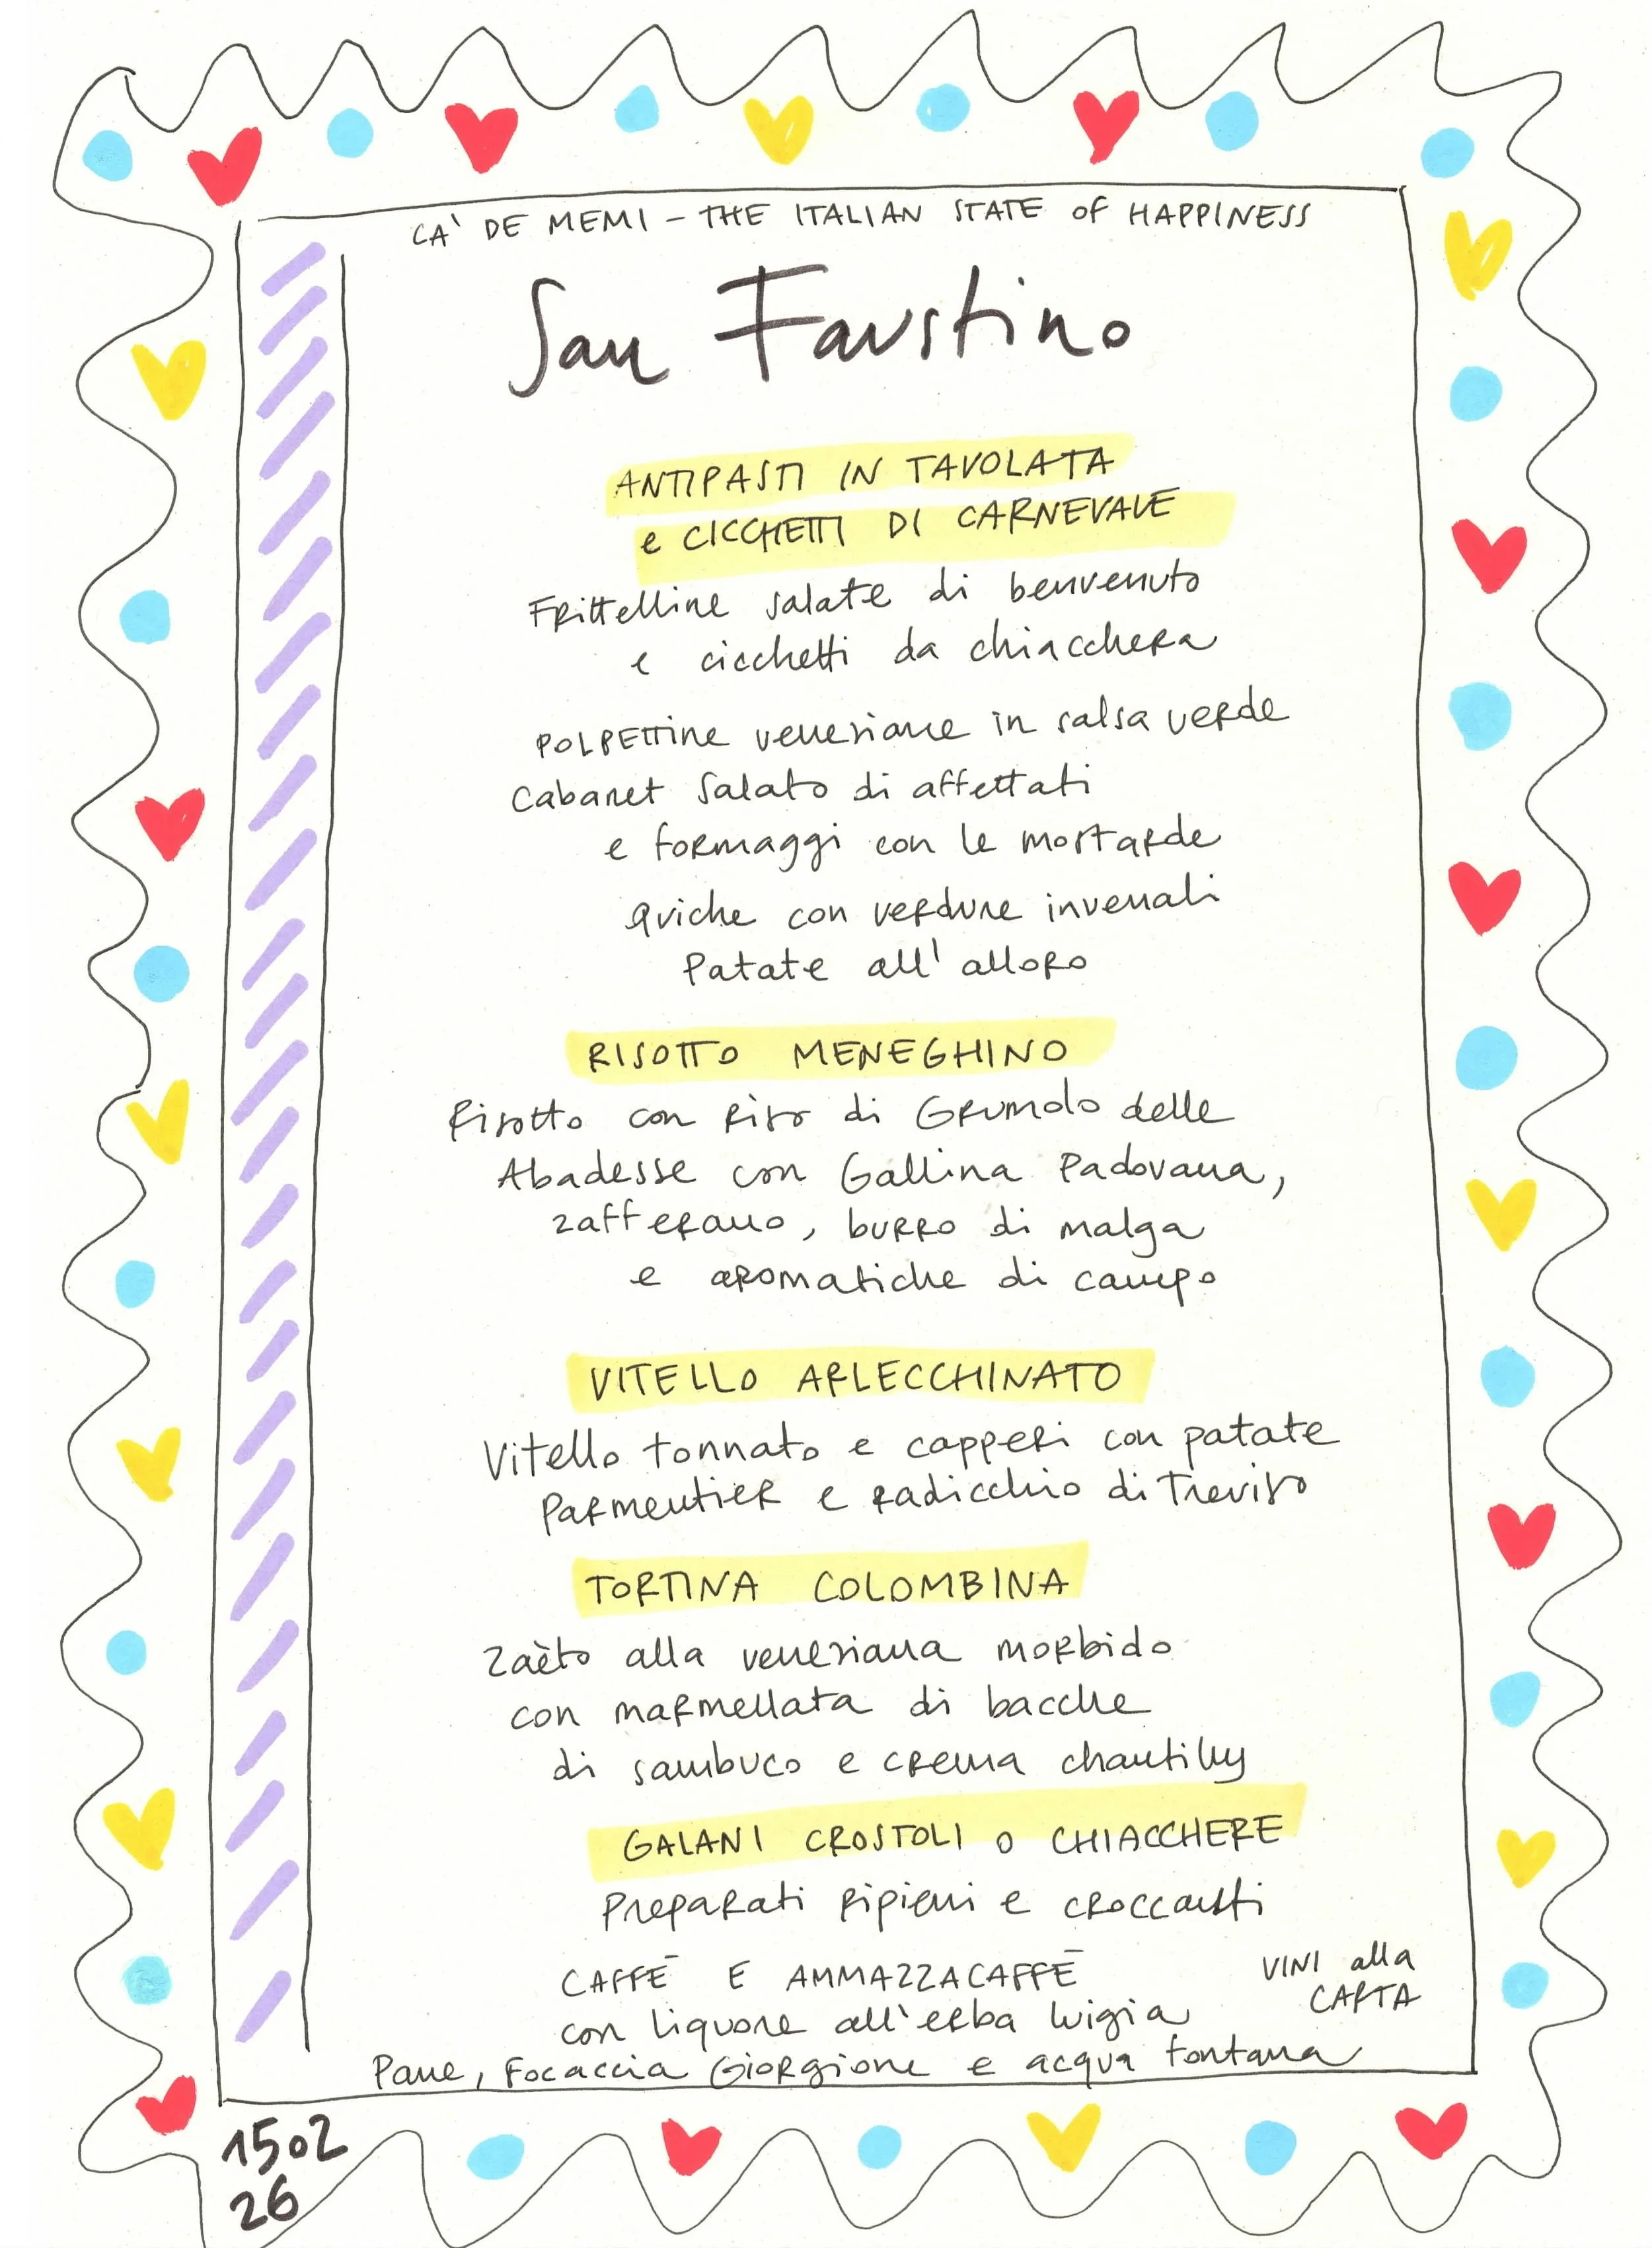 CA' DE MEMI – THE ITALIAN STATE OF HAPPINESS
San Faustino
ANTIPASTI IN TAVOLATA
e CICCHETTI DI CARNEVALE
Frittelline salate di benvenuto
e cicchetti da chiacchera
POLPETTINE veneziane in salsa verde
Cabaret salato di affettati
e formaggi con le mostarde
Quiche con verdure invernali
Patate all'alloro
RISOTTO MENEGHINO
Risotto con riso di Grumolo delle
Abadesse con Gallina Padovana,
zafferano, burro di malga
e aromatiche di campo
VITELLO ARLECCHINATO
Vitello tonnato e capperi con patate
Parmentier e radicchio di Treviso
TORTINA COLOMBINA
Zaèto alla veneziana morbido
con marmellata di bacche
di sambuco e crema chantilly
GALANI CROSTOLI O CHIACCHERE
Preparati ripieni e croccanti
CAFFÈ E AMMAZZACAFFÈ
con liquore all'erba luigia
VINI alla
CARTA
Pane, Focaccia Giorgione e acqua fontana
1502
26